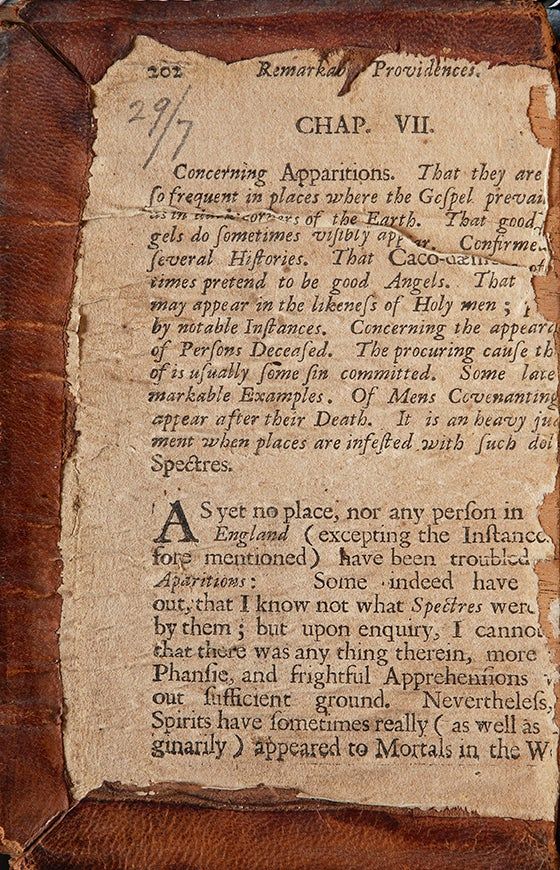 202 Remarkab Providences.
29/7
CHAP. VII.
Concerning Apparitions. That they are
ſo frequent in places where the Goſpel prevai
as in dark corners of the Earth. That good
gels do ſometimes viſibly appear. Confirme
ſeveral Hiſtories. That Caco-dæm of
times pretend to be good Angels. That
may appear in the likeneſs of Holy men ;
by notable Inſtances. Concerning the appeara
of Perſons Deceaſed. The procuring cauſe th
of is uſually ſome ſin committed. Some late
markable Examples. Of Mens Covenanting
appear after their Death. It is an heavy jud
ment when places are infeſted with ſuch dol
Spectres.
AS yet no place, nor any perſon in
England (excepting the Inſtance
fore mentioned) have been troubled
Aparitions: Some indeed have
out, that I know not what Spectres were
by them ; but upon enquiry, I cannot
that there was any thing therein, more
Phanſie, and frightful Apprehenſions
out ſufficient ground. Nevertheleſs,
Spirits have ſometimes really ( as well as
ginarily ) appeared to Mortals in the W